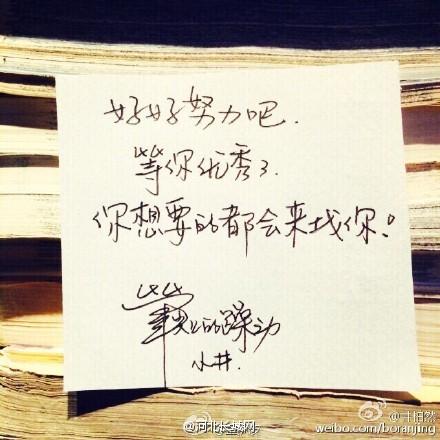 好好努力吧.
等你优秀了.
你想要的都会来找你!
的躁动
小井.
@河北长城网
@井柏然
weibo.com/boranjing